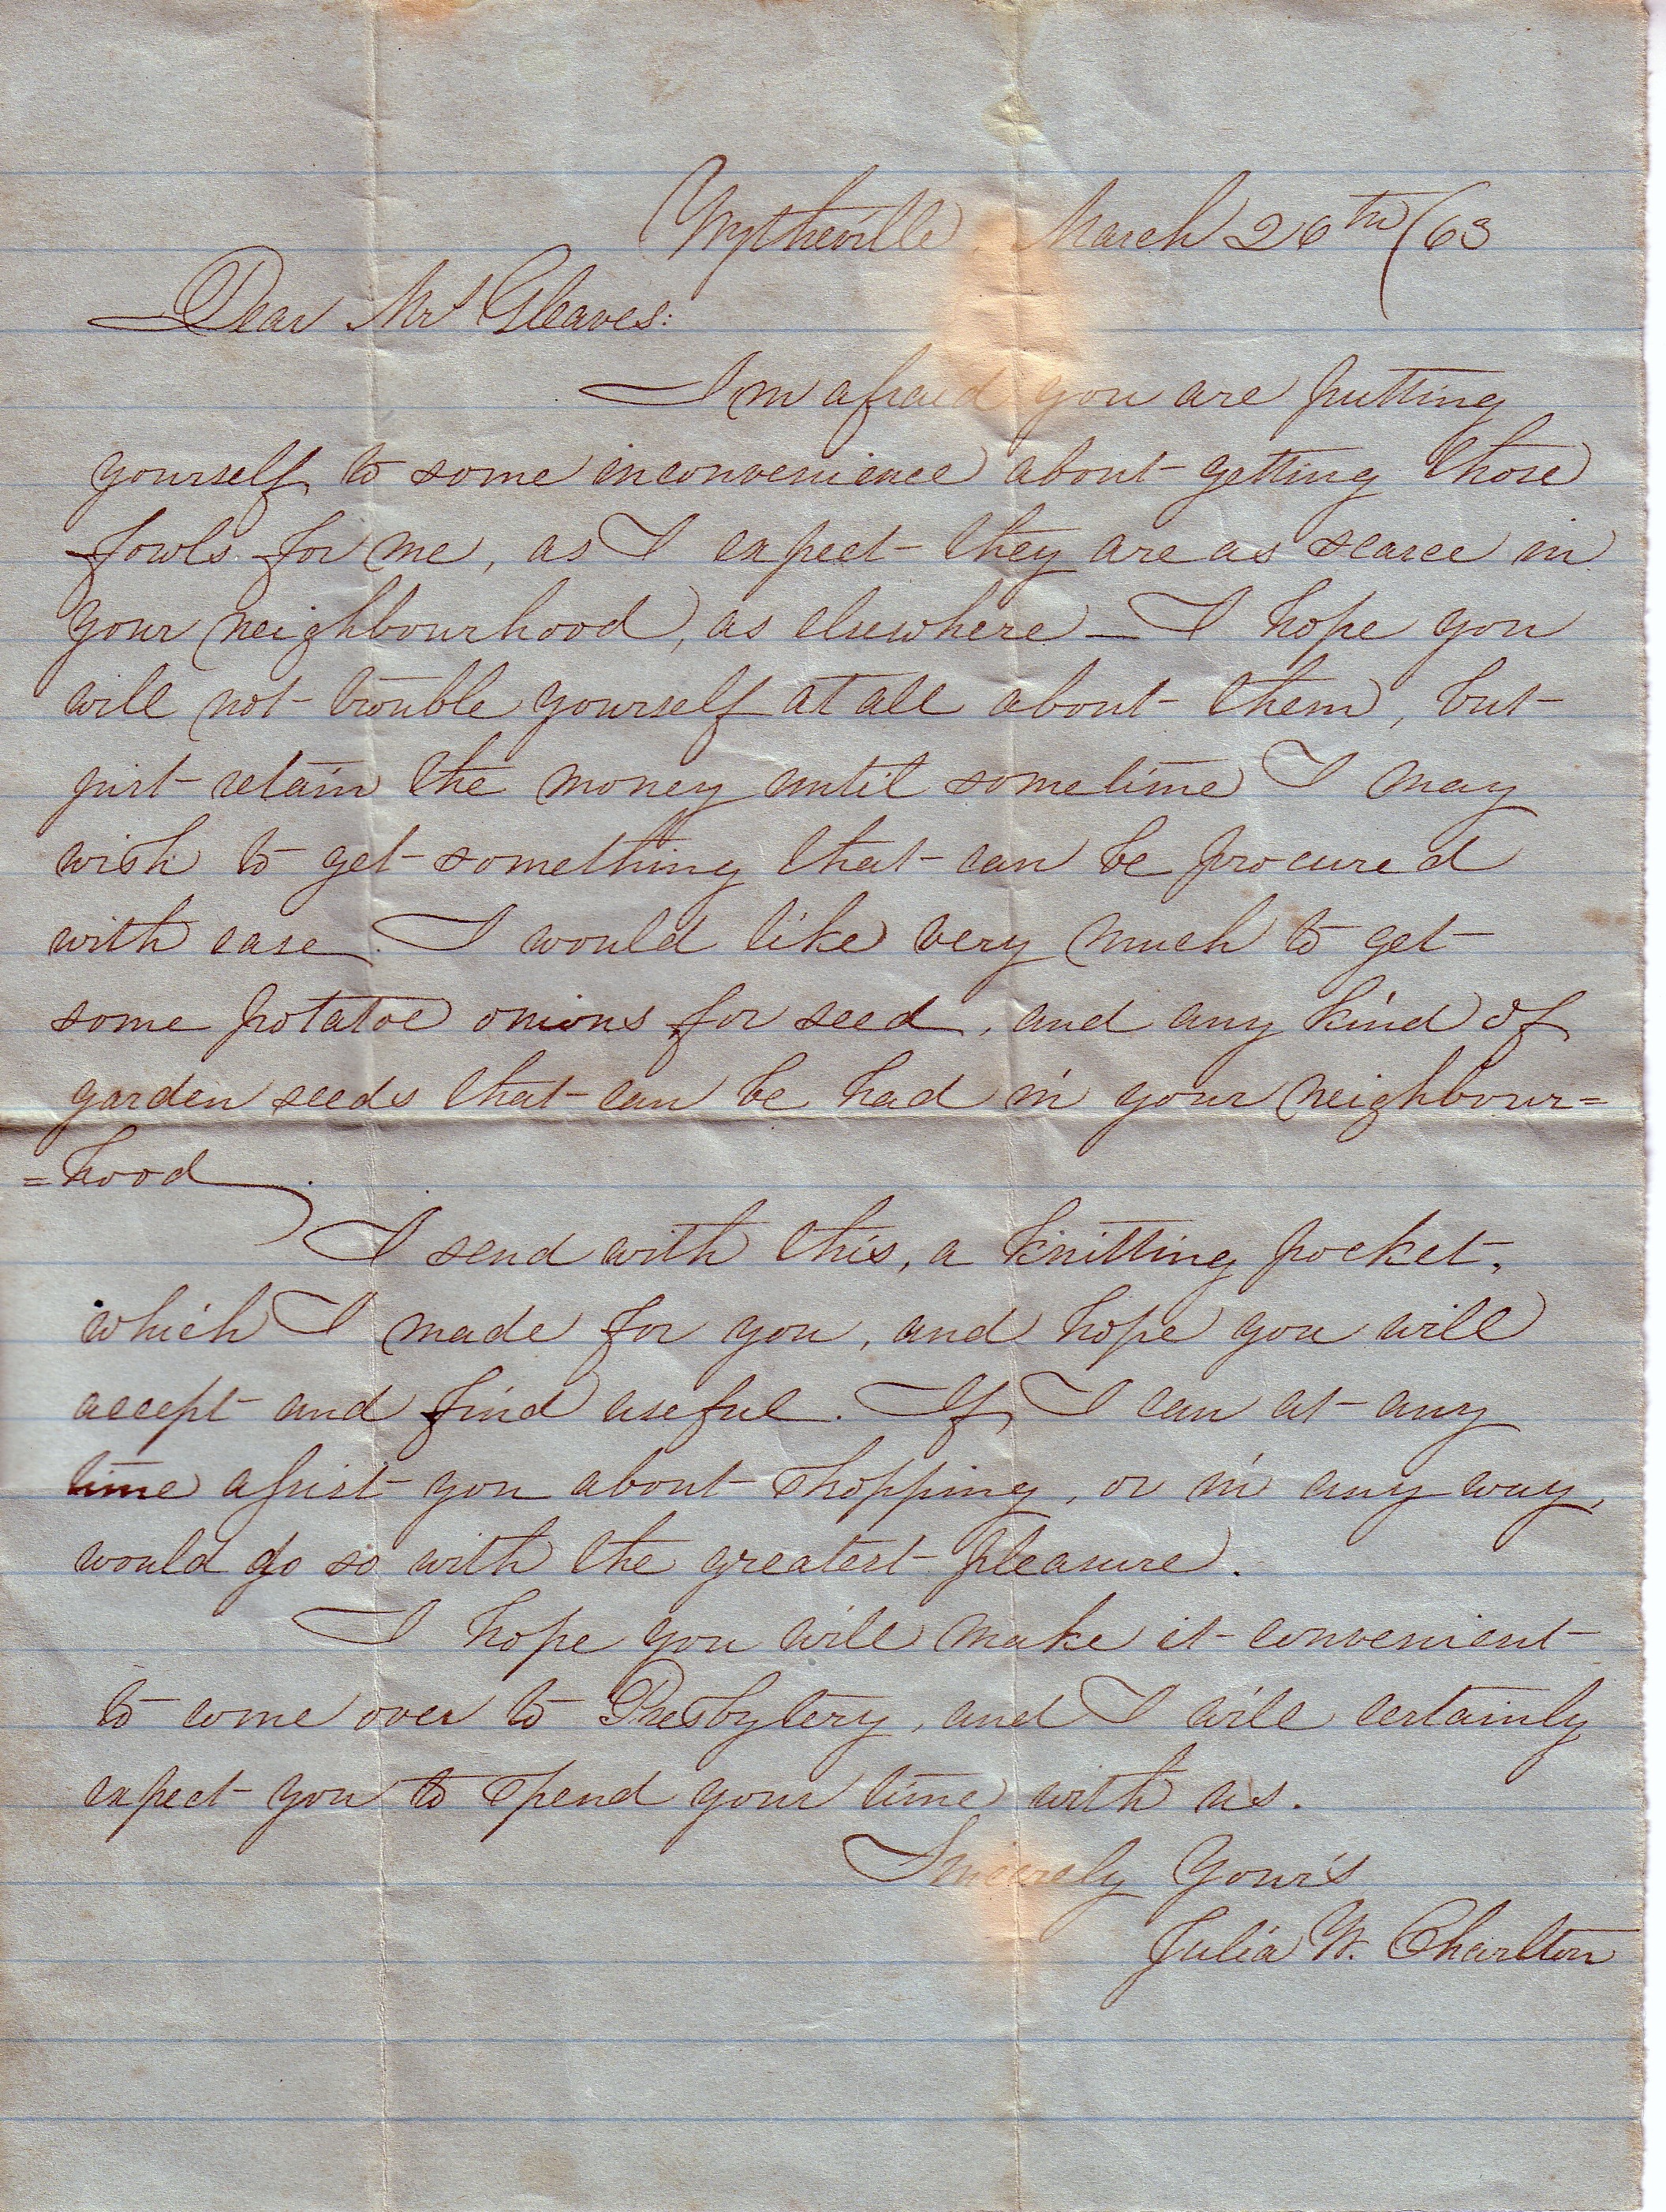 Wytheville March 26th /63
Dear Mrs Gleaves:
I'm afraid you are putting
yourself to some inconvenience about getting those
fowls for me, as I expect they are as scarce in
your neighbourhood, as elsewhere – I hope you
will not trouble yourself at all about them, but
just retain the money until sometime I may
wish to get something that can be procured
with ease. I would like very much to get
some potatoe onions for seed, and any kind of
garden seeds that can be had in your neighbour=
=hood.
I send with this, a knitting pocket,
which I made for you, and hope you will
accept and find useful. If I can at any
time assist you about shopping, or in any way,
would do so with the greatest pleasure.
I hope you will make it convenient
to come over to Presbytery, and I will certainly
expect you to spend your time with us.
Sincerely Your's
Julia W. Charlton